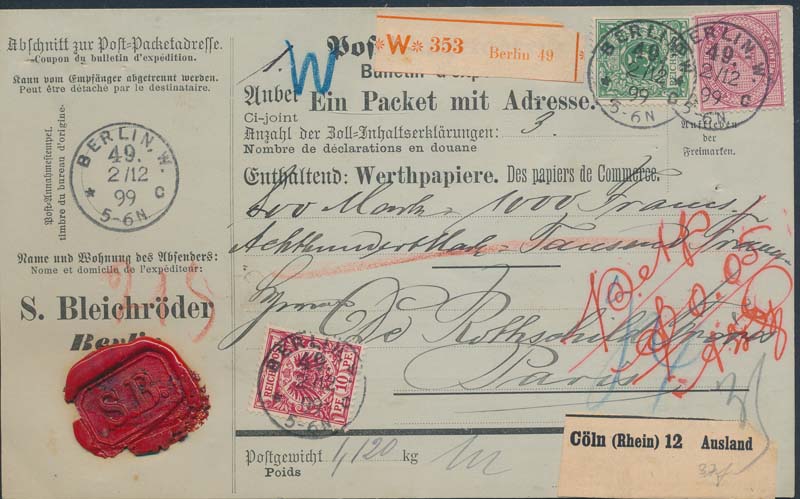 Abschnitt zur Post-Packetadresse.
Coupon du bulletin d'expédition.
Kann vom Empfänger abgetrennt werden.
Peut être détaché par le destinataire.
Post-Annahmestempel.
timbre du bureau d'origine.
BERLIN, W.
49.
2/12
99
5-6N
* C
Name und Wohnung des Absenders:
Nom et domicile de l'expéditeur:
S. Bleichröder
Berlin
S.B.
W
*W* 353 Berlin 49
Pos
Bulletin d'exp
Anbei
Ci-joint
Ein Packet mit Adresse.
Anzahl der Zoll-Inhaltserklärungen: 3.
Nombre de déclarations en douane
Enthaltend: Werthpapiere. Des papiers de Commerce.
800 Mark = 1000 Francs
Achthundert Mark = Tausend Francs
de Rothschild frères
Paris
BERLIN, W.
49.
2/12
99
5-6N
* C
BERLIN, W.
49.
2/12
99
5-6N
C
Aufkleben
der
Freimarken.
BERLIN, W.
49.
2/12
5-6N
REICHSPOST
10 PF. 10 PF.
Postgewicht
Poids
4,120 kg
Cöln (Rhein) 12 Ausland